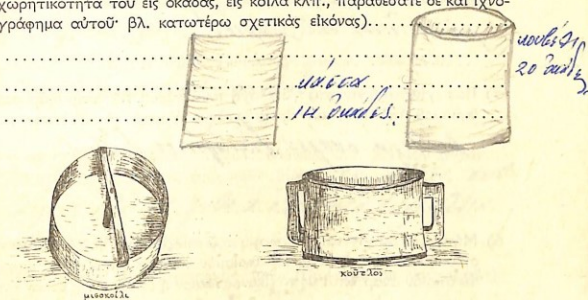 χωρητικότητά του εἰς ὀκάδας, εἰς κοιλὰ κλπ., παραθέσατε δὲ καὶ ἰχνο-
γράφημα αὐτοῦ· βλ. κατωτέρω σχετικὰς εἰκόνας)
κουβέλι
20 ὀκάδες
κάσσα
14 ὀκάδες.
μισοκοίλι
κοῦτλος